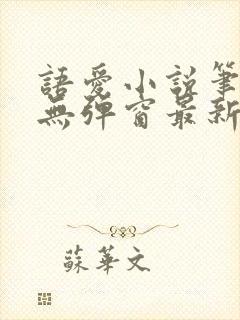 語愛小說筆
無彈窗最新
蘇華文